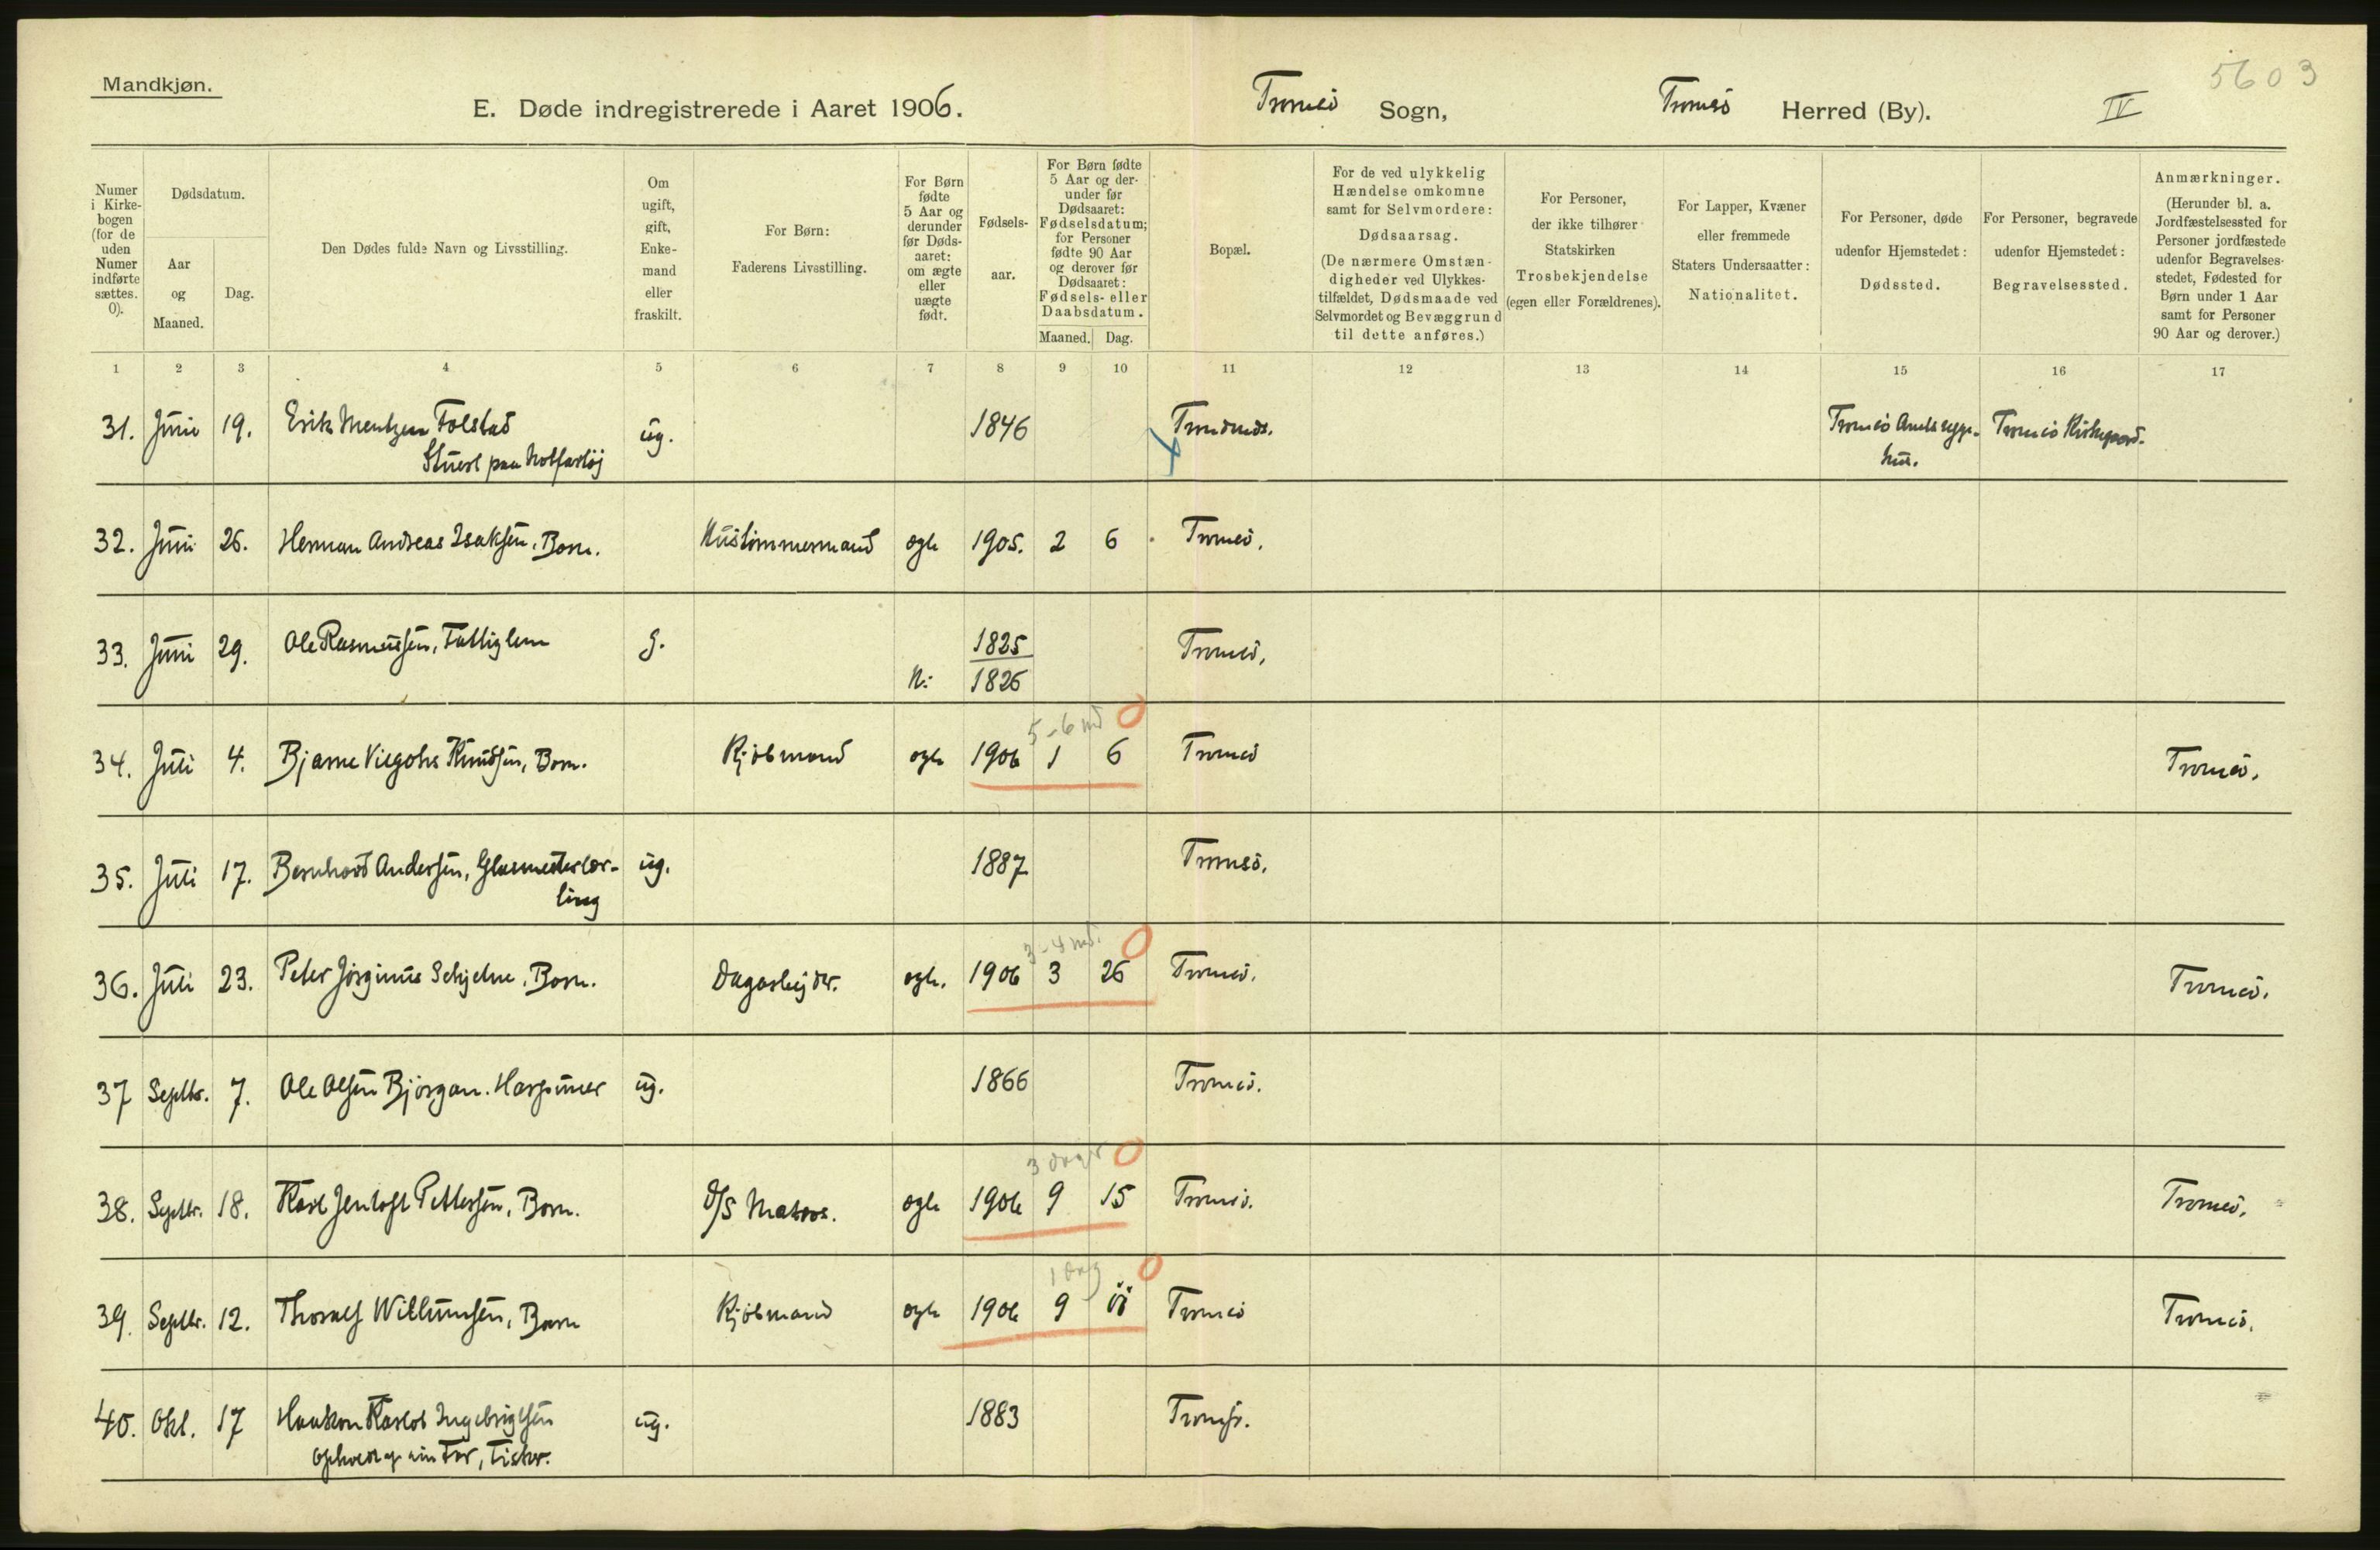 Mandkjøn.
5603
E. Døde indregistrerede i Aaret 1906.
Tromsö Sogn,
Tromsö Herred (By).
IV
Numer i Kirke-bogen (for de uden Numer indførte sættes. 0).
Dødsdatum.
Aar og Maaned.
Dag.
Den Dødes fulde Navn og Livsstilling.
Om ugift, gift, Enke-mand eller fraskilt.
For Børn: Faderens Livsstilling.
For Børn fødte 5 Aar og derunder før Døds-aaret: om ægte eller uægte født.
Fødsels-aar.
For Børn fødte 5 Aar og der-under før Dødsaaret: Fødselsdatum; for Personer fødte 90 Aar og derover før Dødsaaret: Fødsels- eller Daabsdatum.
Maaned.
Dag.
Bopæl.
For de ved ulykkelig Hændelse omkomne samt for Selvmordere: Dødsaarsag. (De nærmere Omstæn-digheder ved Ulykkes-tilfældet, Dødsmaade ved Selvmordet og Bevæggrund til dette anføres.)
For Personer, der ikke tilhører Statskirken Trosbekjendelse (egen eller Forældrenes).
For Lapper, Kvæner eller fremmede Staters Undersaatter: Nationalitet.
For Personer, døde udenfor Hjemstedet: Dødssted.
For Personer, begravede udenfor Hjemstedet: Begravelsessted.
Anmærkninger. (Herunder bl. a. Jordfæstelsessted for Personer jordfæstede udenfor Begravelses-stedet, Fødested for Børn under 1 Aar samt for Personer 90 Aar og derover.)
1 2 3 4 5 6 7 8 9 10 11 12 13 14 15 16 17
31. Juni 19. Erik Mentzen Folstad ug. 1846 Tromsö Amtssyge- Tromsö Kirkegaard.
Stuert paa hus.
32. Juni 26. Herman Andreas Isaksen, Barn. Hustömmermand ægte 1905. 2 6 Tromsö.
33. Juni 29. Ole Rasmussen, Fattiglem g. 1825 Tromsö.
N: 1826
5-6 md 0
34. Juli 4. Bjarne Knudsen, Barn. Kjöbmand ægte 1906 1 6 Tromsö Tromsö.
35. Juli 17. Bernhard Andersen, Glasmesterlær- ug. 1887 Tromsö.
ling
3-4 md. 0
36. Juli 23. Peter Jörginus Schjelne, Barn. Dagarbejder. ægte. 1906 3 26 Tromsö. Tromsö.
37 Septbr. 7. Ole Olsen Björgan. Harpuner ug. 1866 Tromsö.
3 dage 0
38. Septbr. 18. Karl Jentoft Pettersen, Barn. D/S Matros. ægte 1906 9 15 Tromsö. Tromsö.
1 dag 0
39. Septbr. 12. Thoralf Willumsen, Barn Kjöbmand ægte 1906 9 11 Tromsö Tromsö.
40. Okt. 17 Haakon Karlot Ingebrigtsen ug. 1883 Tromsö.
Far, Fisker.